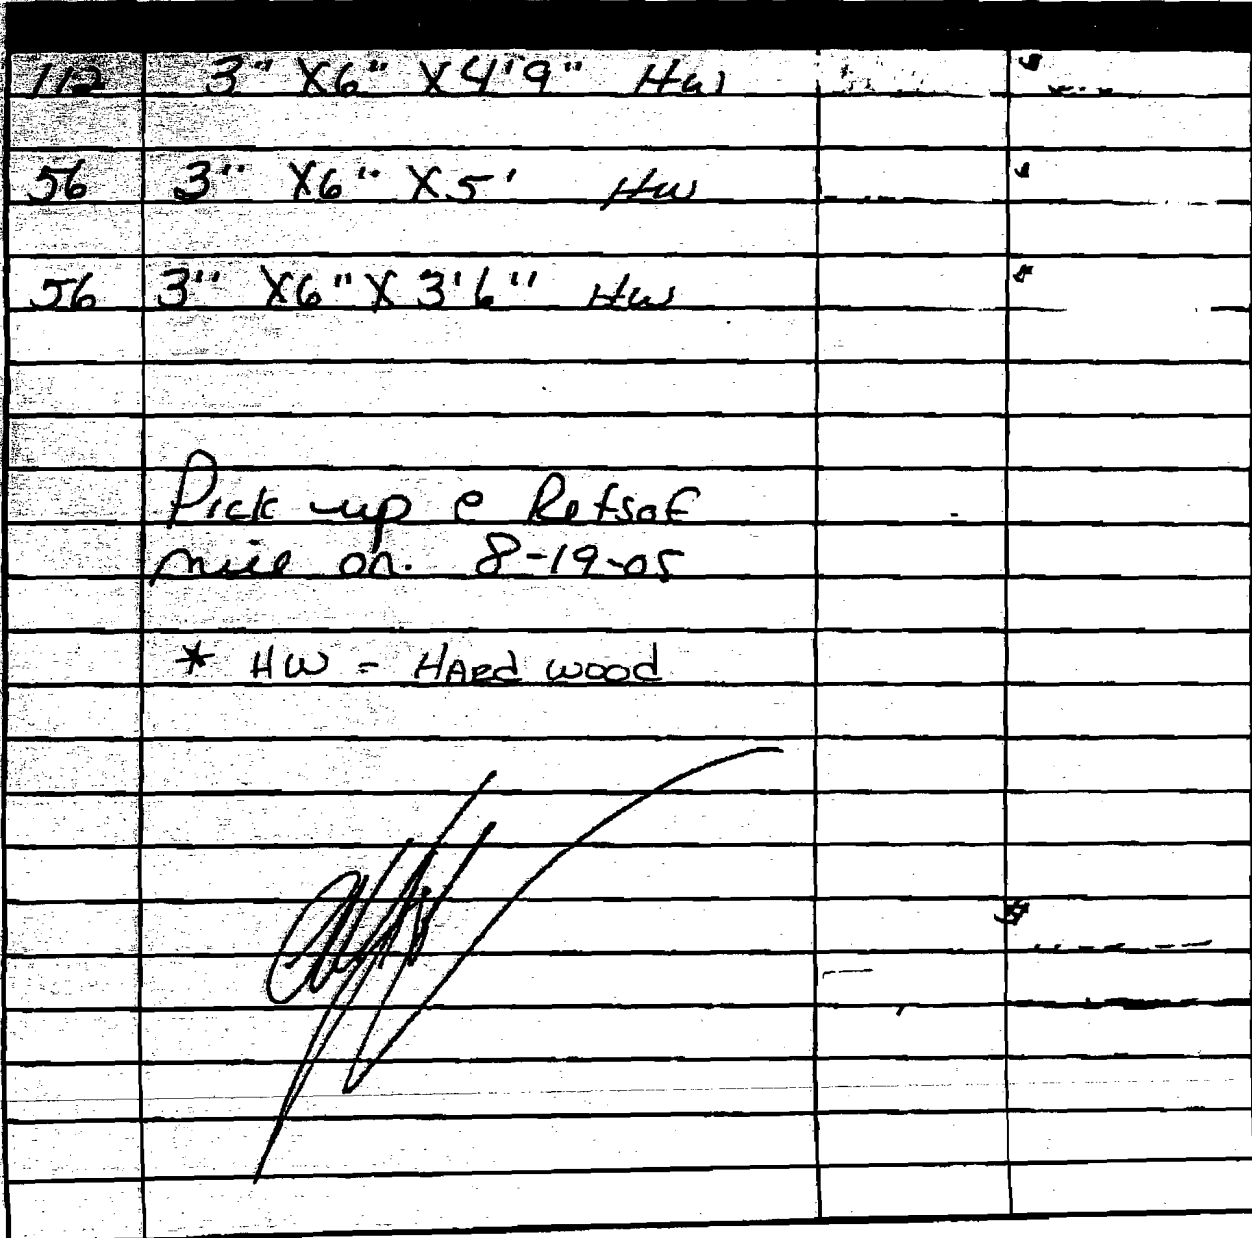 112 3" X6" X4'9" HW
56 3" X6" X5' HW
56 3" X6" X3'6" HW
Pick up @ Retsof
mill on. 8-19-05
* HW = HARd wood